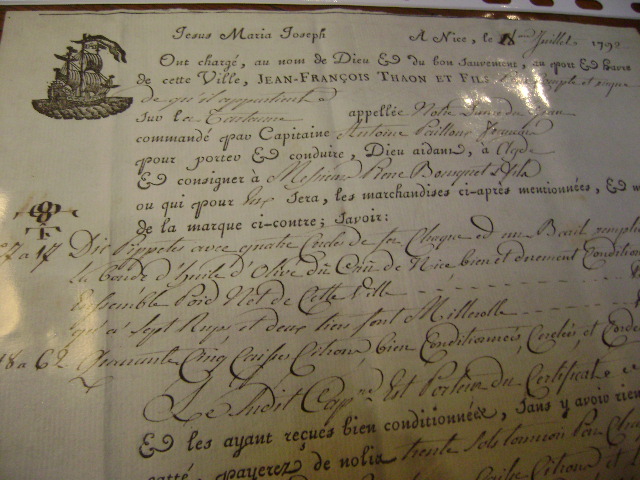 Jesus Maria Joseph A Nice, le 18 Juillet 1792
Ont chargé, au nom de Dieu & du bon sauvement, au port & havre
de cette Ville, JEAN-FRANÇOIS THAON ET FILS, compte et risque
de qu'il appartient
sur la Tartanne appellée Notre Dame
commandé par Capitaine Antoine
pour porter & conduire, Dieu aidant, à Agde
& consigner à Messieurs Pierre Bousquet & fils
ou qui pour Eux sera, les marchandises ci-après mentionnées, &
de la marque ci-contre; savoir:
7 a 17 Dix Pippetes avec quatre Cercles de fer Chaque et un Baril
la bonde d'huile d'Olive du Crû de Nice bien et duement Condition
Ensemble Poid Net de Cette Ville
qu a Sept Rups et deux tiers font Millerolle
18 a 62 Quarante Cinq Caisses Citrons bien Conditionnés, Cerclés et
Le Sudit Capne Est Porteur du Certificat
& les ayant reçues bien conditionnées, sans y avoir rien
gatté, payerez de nolis trente sols tournois Par
Caisse Citrons et